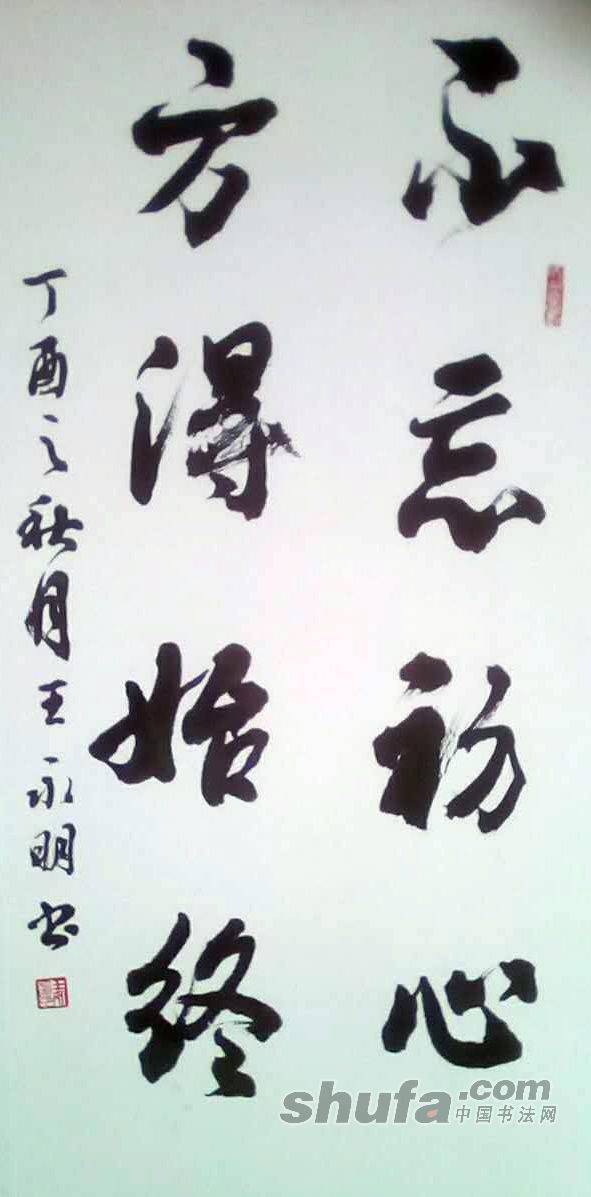 不忘初心
方得始终
丁酉之秋月王永明书
shufa.com
中国书法网